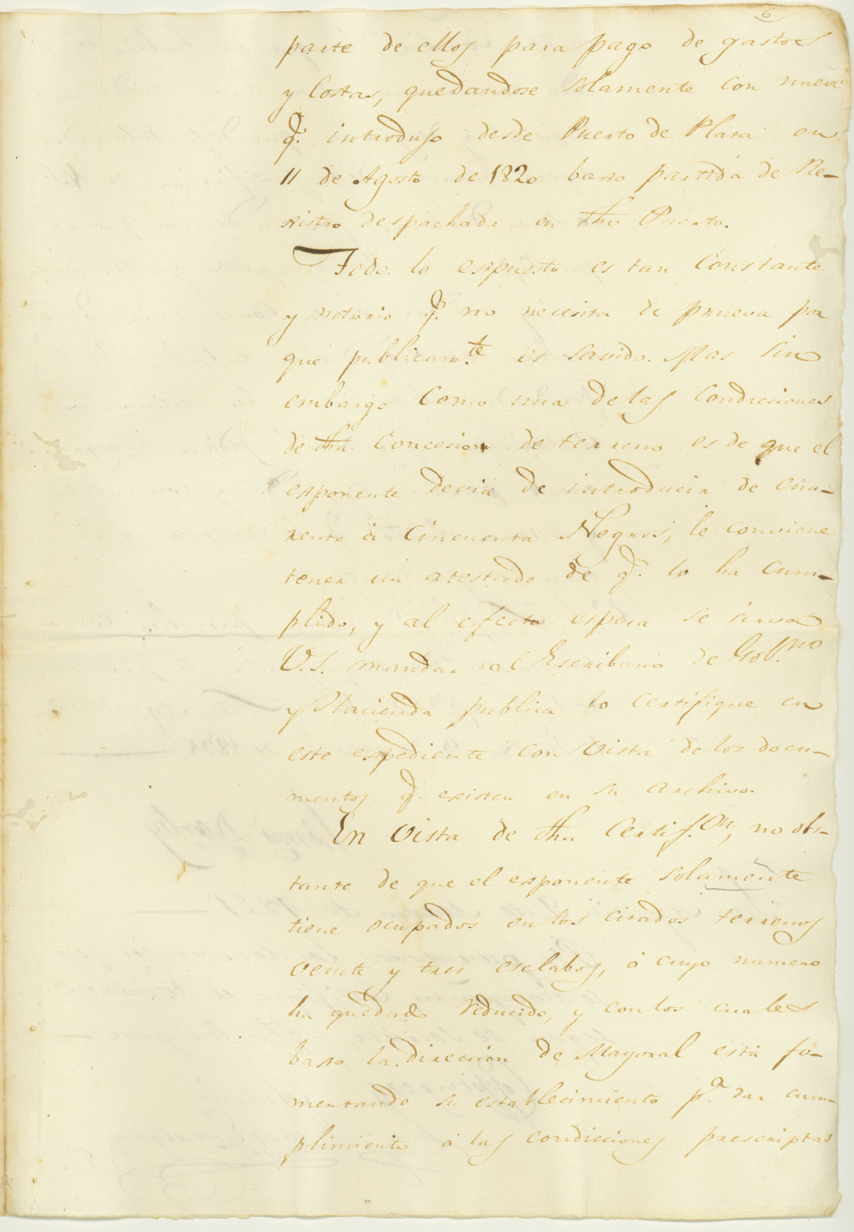 6
parte de ellos para pago de gastos
y Costas, quedandose solamente con nueve
q.e introdujo desde Puerto de Plata en
11 de Agosto de 1820 baxo partida de Re-
xistro despachada en dho Puerto.
Todo lo espuesto es tan Constante
y notorio q.e no necesita de prueva por
que publicam.te es savido. Mas sin
embargo Como una de las Condiciones
de dha Concesion de terreno es de que el
esponente devia de introducir de cua-
renta á Cincuenta Negros, le conviene
tener un atestado de q.e lo ha Cum-
plido, y al efecto espera se sirva
V.S. mandar al Escribano de Gob.no
y Hacienda publica lo Certifique en
este espediente con vista de los docu-
mentos q.e existen en su archivo.
En vista de dha Certif.on, no obs-
tante de que el esponente solamente
tiene ocupados en los citados terrenos
veinte y tres esclabos, á cuyo numero
ha quedado reducido, y con los cuales
baxo la direccion de Mayoral está fo-
mentando su establecimiento p.a dar cum-
plimiento á las condicciones prescriptas